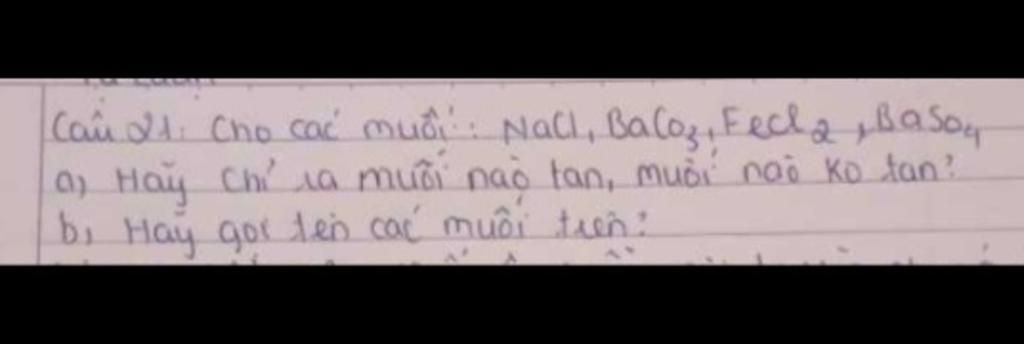 Câu 21: Cho các muối: NaCl, BaCO3, FeCl2, BaSO4
a, Hãy chỉ ra muối nào tan, muối nào ko tan?
b, Hãy gọi tên các muối trên?